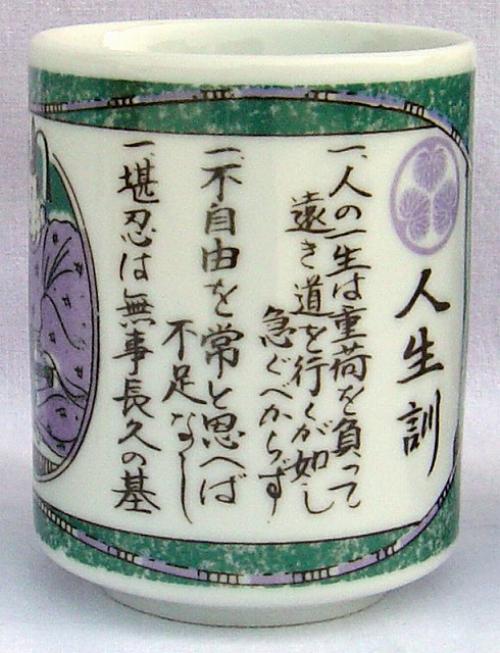 人生訓
一、人の一生は重荷を負って
遠き道を行くが如し
急ぐべからず
一、不自由を常と思へば
不足なし
一、堪忍は無事長久の基